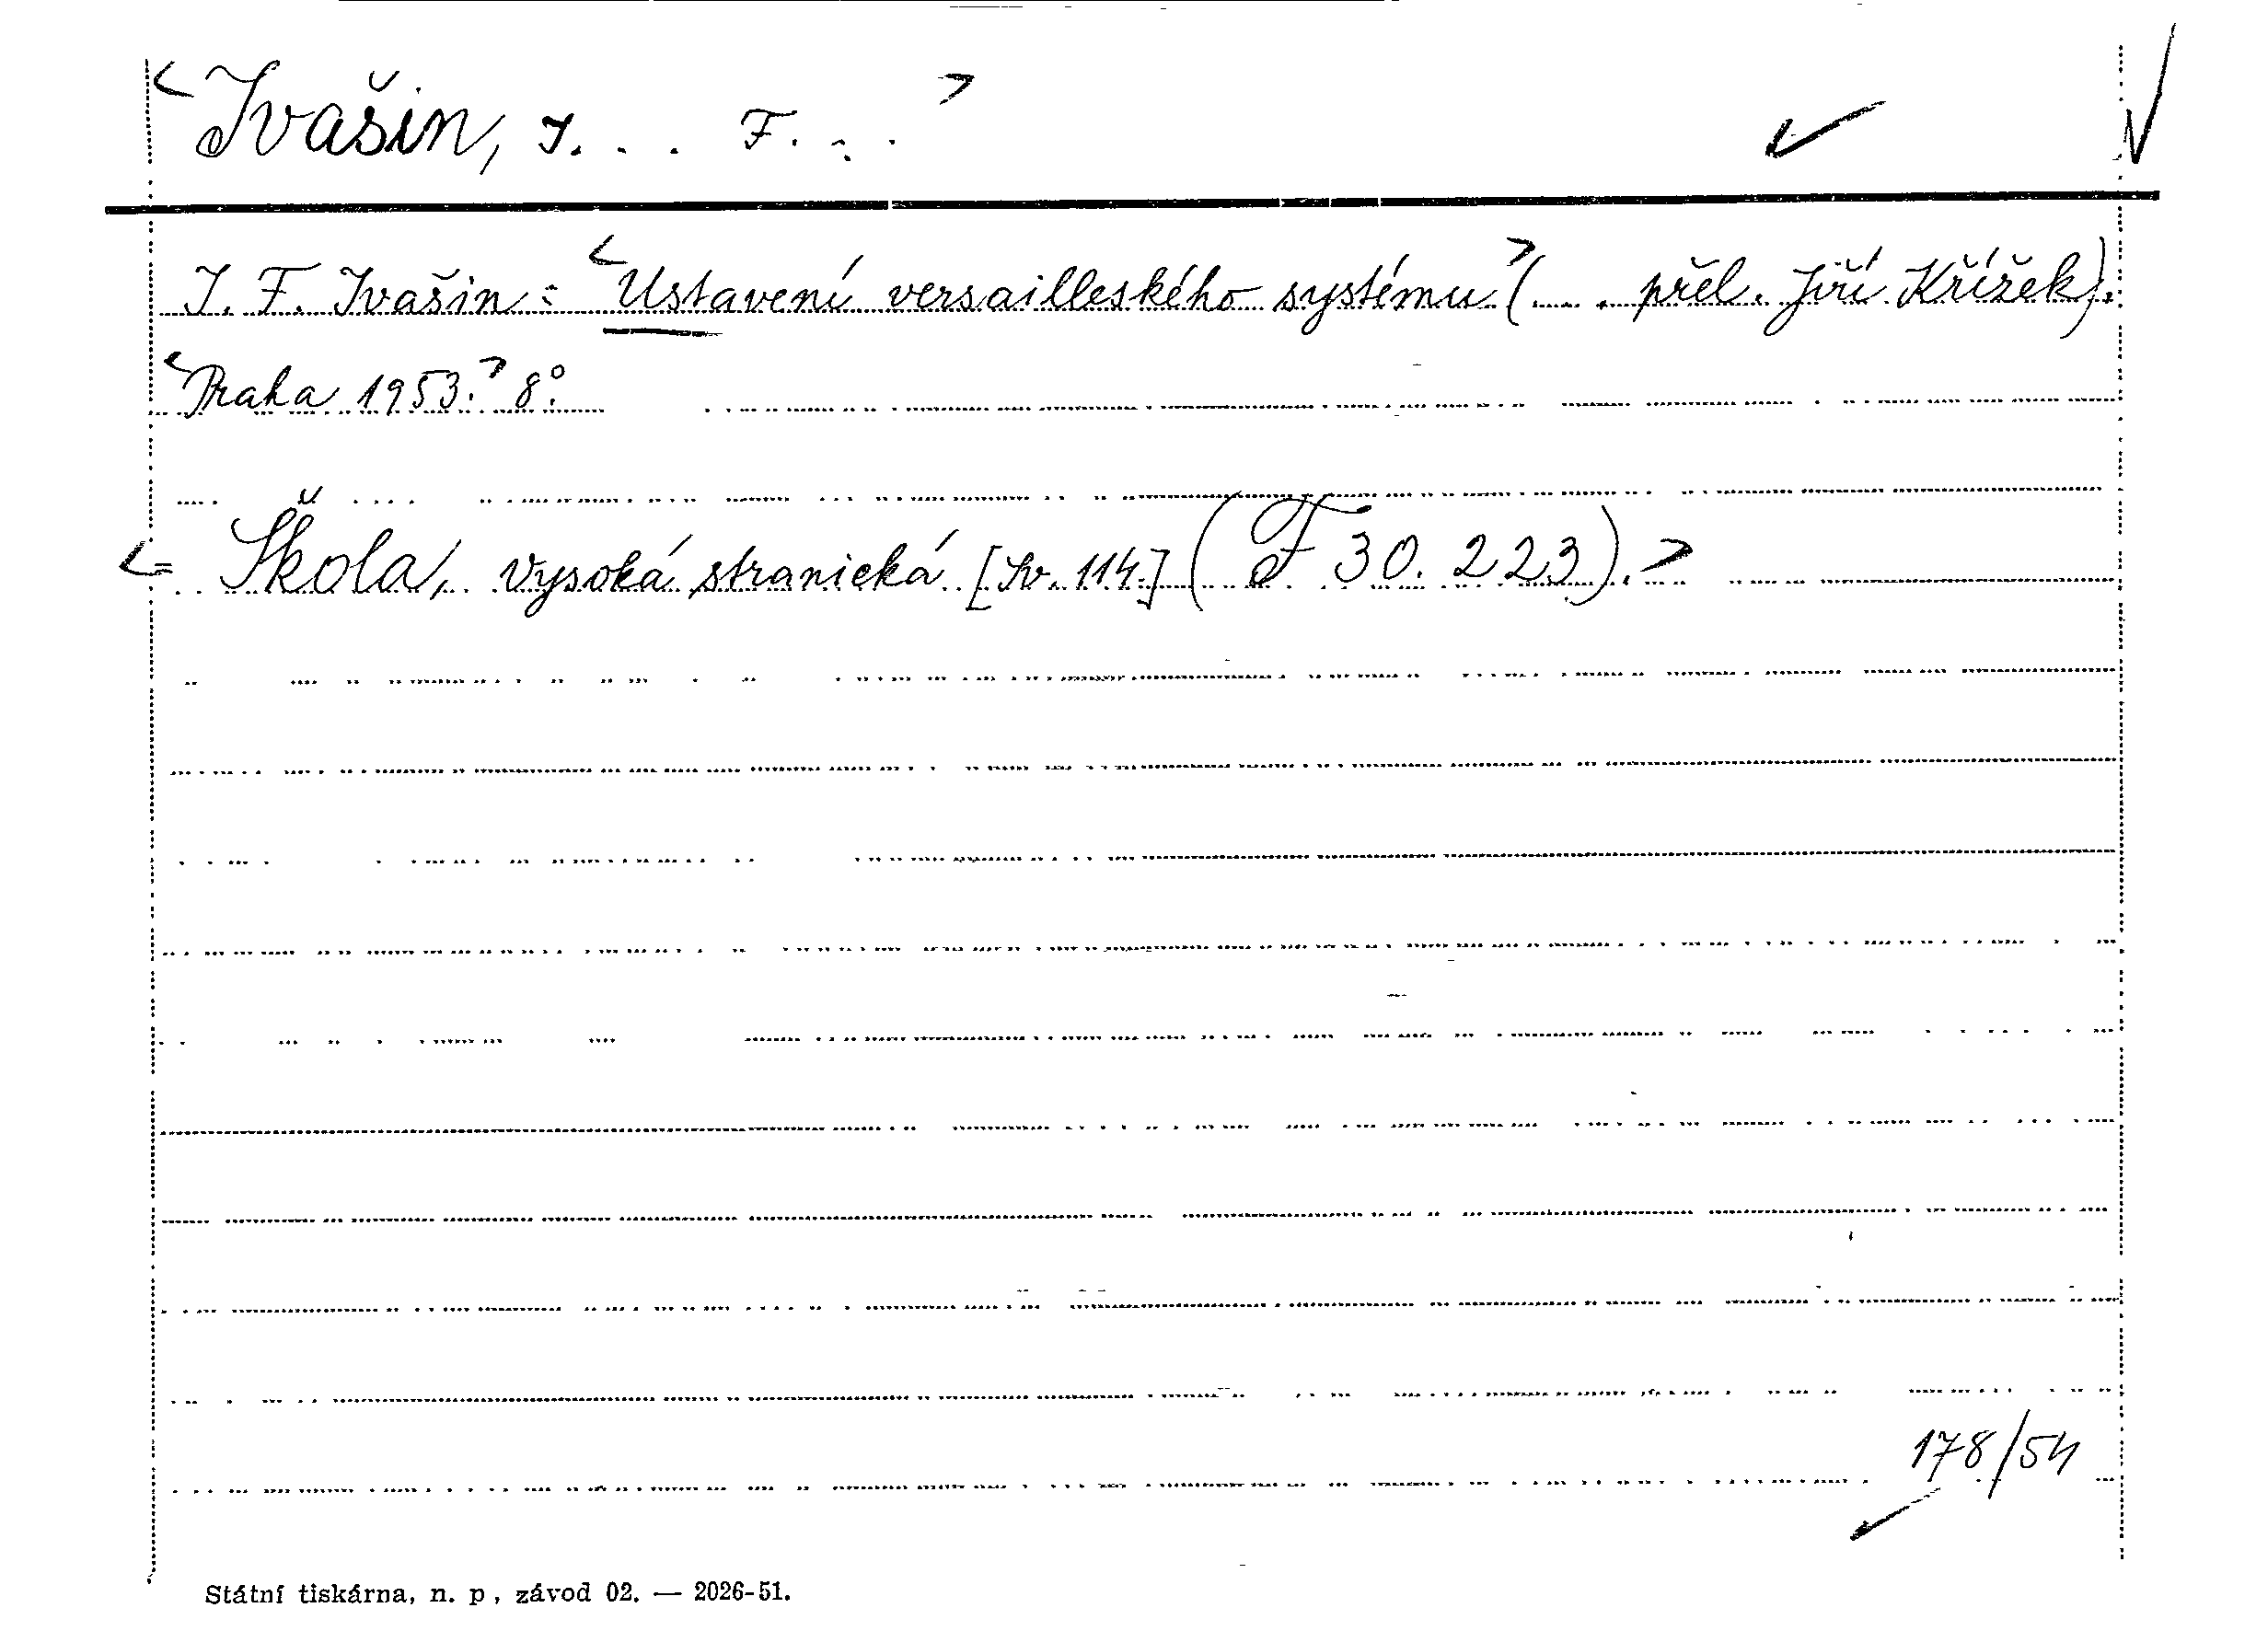 <Ivašin, I. . . F. . .>
I. F. Ivašin: <Ustavení versailleského systému> (... přel. Jiří Křížek).
<Praha 1953.> 8°.
<= Škola, vysoká stranická [Sv. 114.] (F 30.223).>
178/54
Státní tiskárna, n. p., závod 02. — 2026-51.